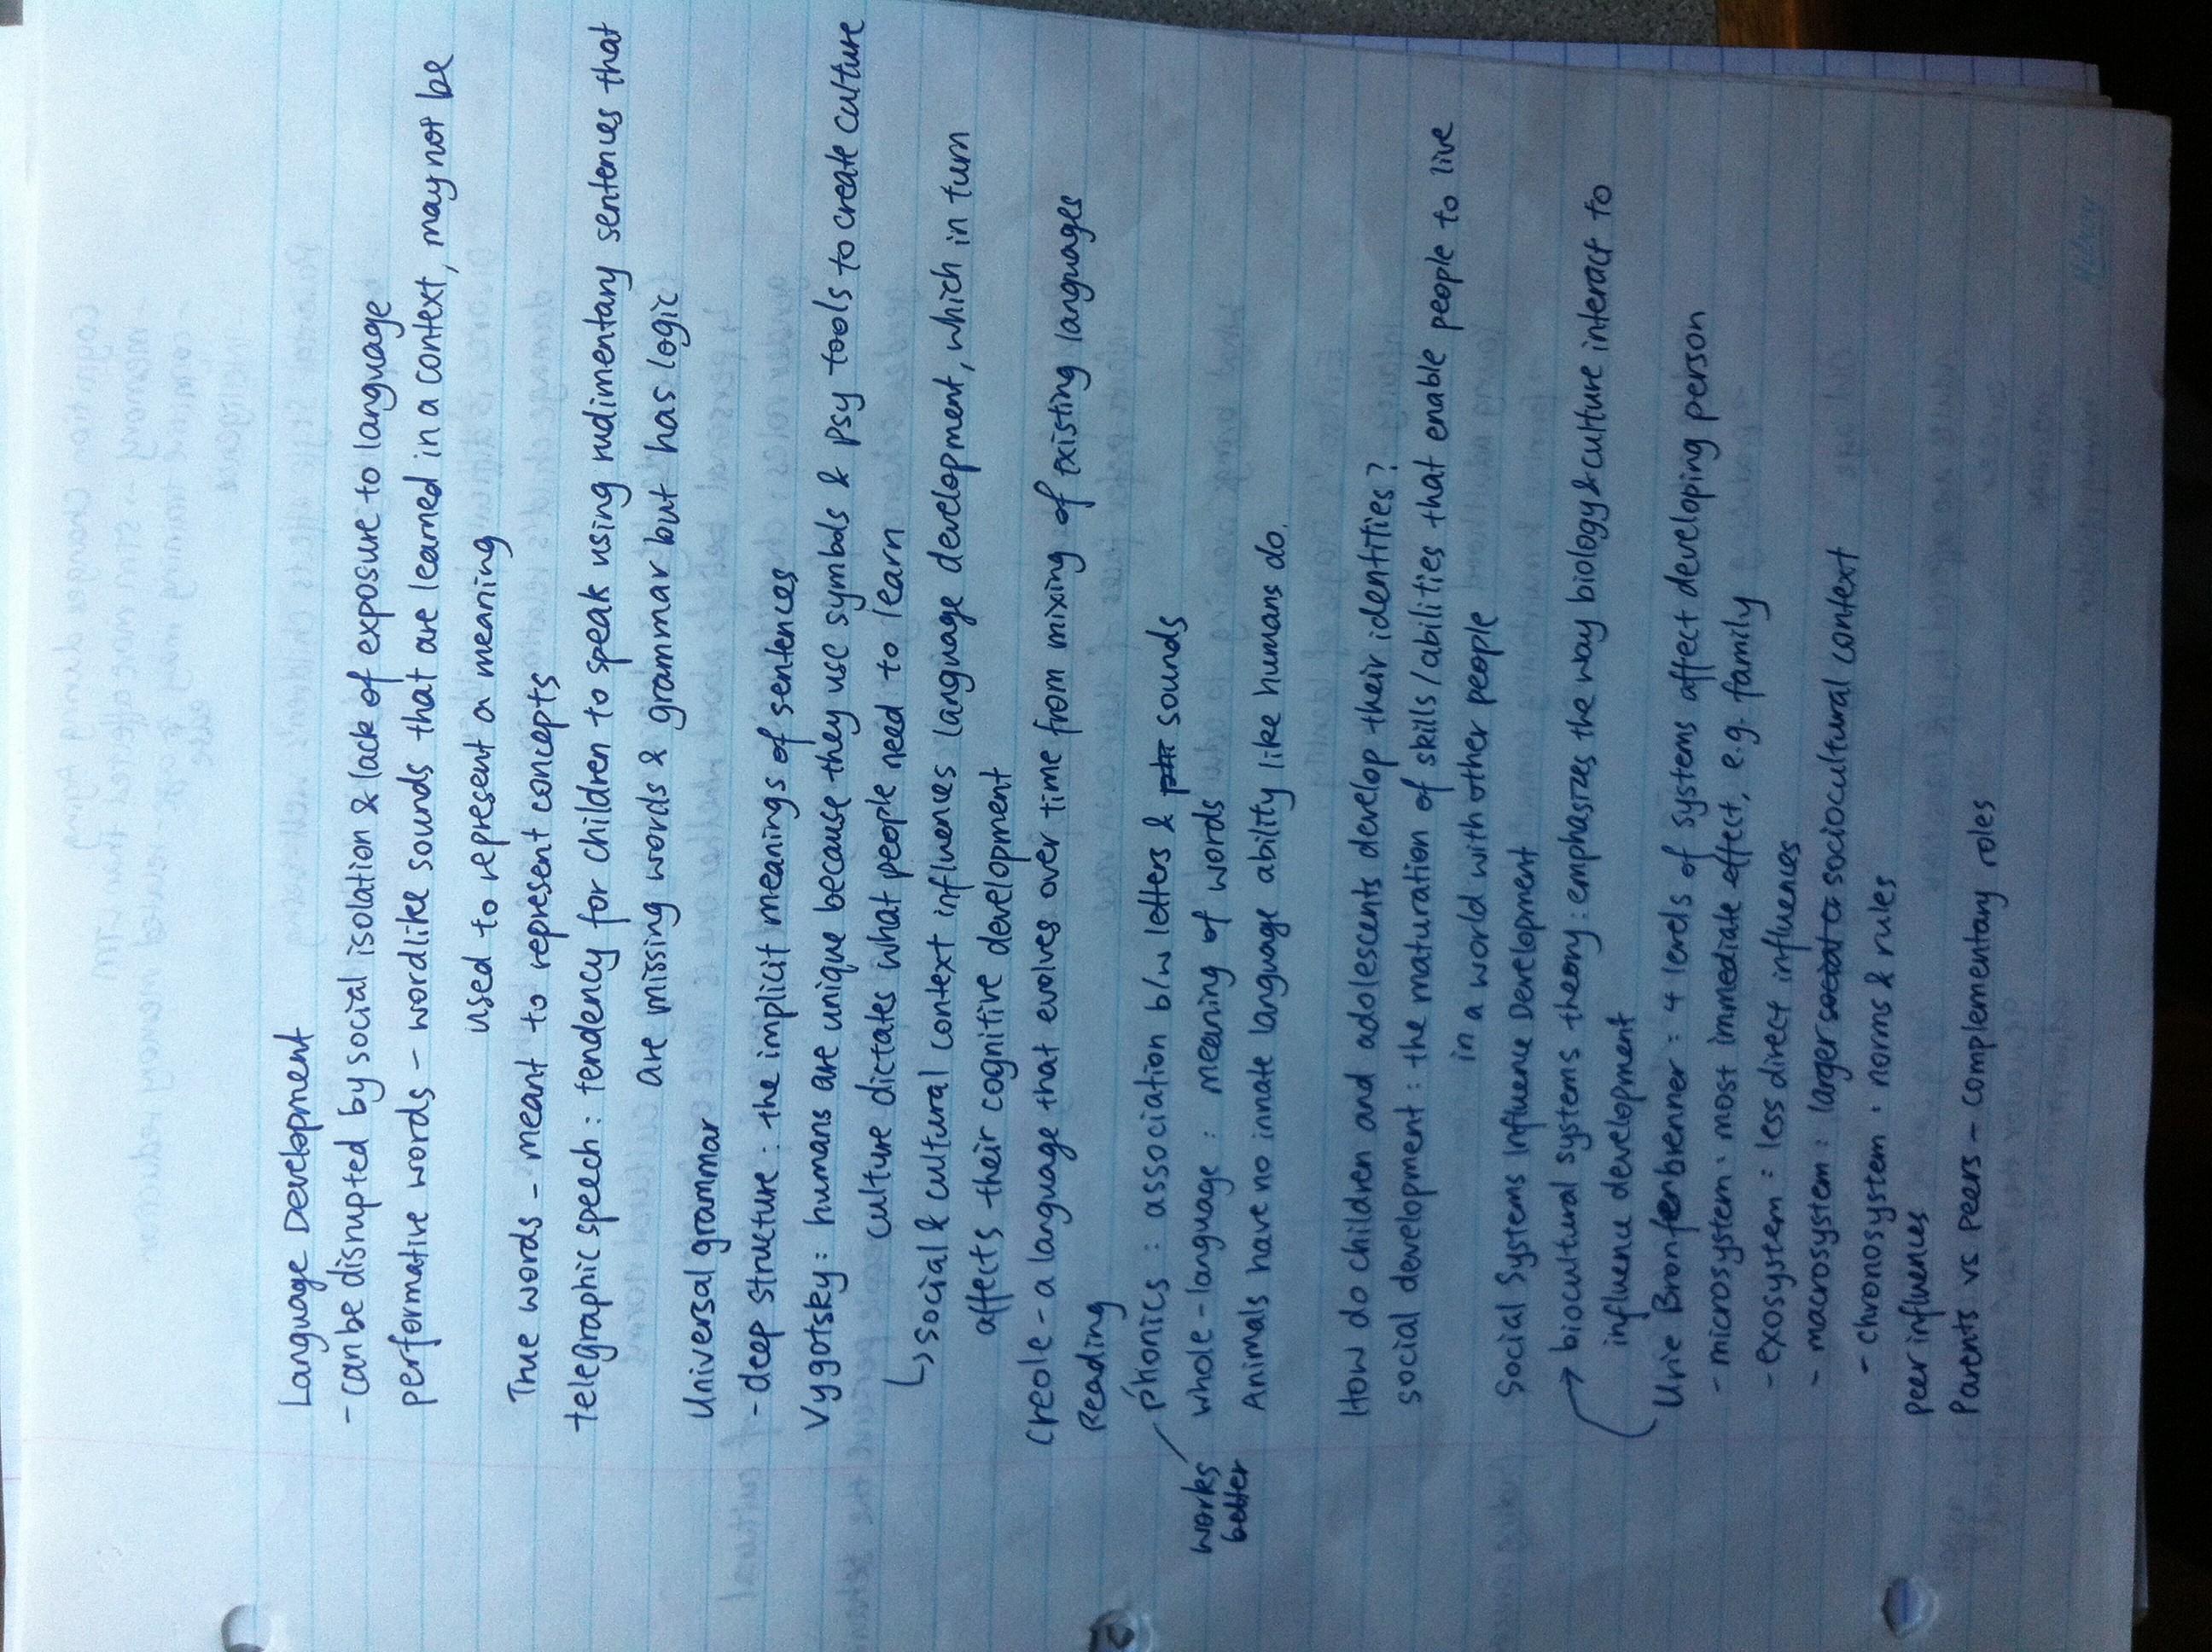 Language Development
- can be disrupted by social isolation & lack of exposure to language
performative words - wordlike sounds that are learned in a context, may not be
used to represent a meaning
True words - meant to represent concepts
telegraphic speech : tendency for children to speak using rudimentary sentences that
are missing words & grammar but has logic
Universal grammar
- deep structure : the implicit meanings of sentences
Vygotsky : humans are unique because they use symbols & psy tools to create culture
culture dictates what people need to learn
↳ social & cultural context influences language development, which in turn
affects their cognitive development
Creole - a language that evolves over time from mixing of existing languages
Reading
phonics : association b/w letters & sounds
works better
whole-language : meaning of words
Animals have no innate language ability like humans do.
How do children and adolescents develop their identities?
social development : the maturation of skills/abilities that enable people to live
in a world with other people
Social Systems Influence Development
→ biocultural systems theory : emphasizes the way biology & culture interact to
influence development
Urie Bronfenbrenner : 4 levels of systems affect developing person
- microsystem : most immediate effect, e.g. family
- exosystem : less direct influences
- macrosystem : larger sociocultural context
- chronosystem : norms & rules
peer influences
Parents vs peers - complementary roles